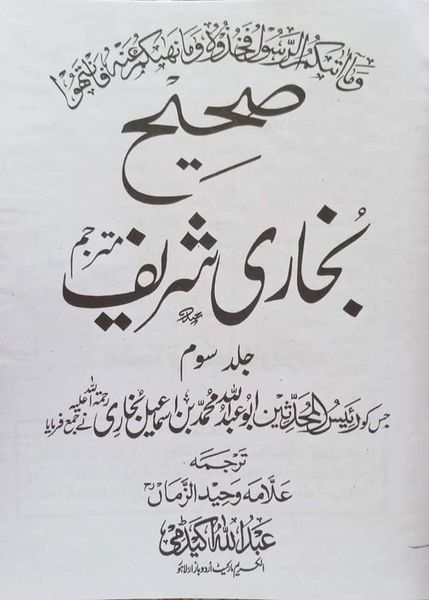 وما آتىكم الرسول فخذوه وما نهىكم عنه فانتهوا
صحیح
بخاری شریف مترجم
جلد سوم
جس کو رئیس المحدثین ابو عبداللہ محمد بن اسماعیل بخاری رحمۃ اللہ علیہ نے جمع فرمایا
ترجمہ
علامہ وحید الزماںؒ
عبداللہ اکیڈمی
الکریم مارکیٹ اردو بازار لاہور